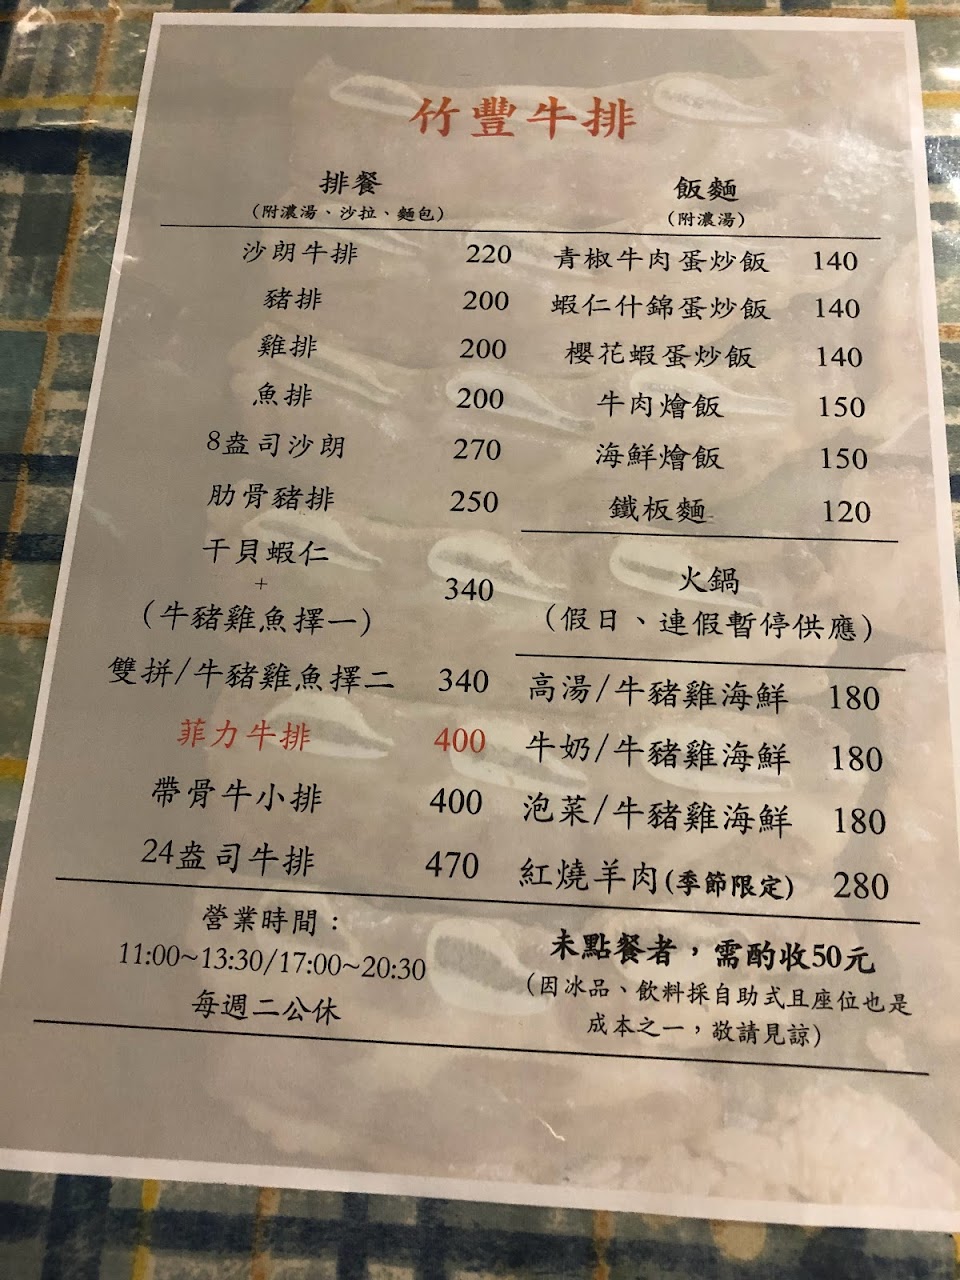 竹豐牛排
排餐
(附濃湯、沙拉、麵包)
沙朗牛排 220
豬排 200
雞排 200
魚排 200
8盎司沙朗 270
肋骨豬排 250
干貝蝦仁
+
(牛豬雞魚擇一) 340
雙拼/牛豬雞魚擇二 340
菲力牛排 400
帶骨牛小排 400
24盎司牛排 470
飯麵
(附濃湯)
青椒牛肉蛋炒飯 140
蝦仁什錦蛋炒飯 140
櫻花蝦蛋炒飯 140
牛肉燴飯 150
海鮮燴飯 150
鐵板麵 120
火鍋
(假日、連假暫停供應)
高湯/牛豬雞海鮮 180
牛奶/牛豬雞海鮮 180
泡菜/牛豬雞海鮮 180
紅燒羊肉(季節限定) 280
營業時間：
11:00~13:30/17:00~20:30
每週二公休
未點餐者，需酌收50元
(因冰品、飲料採自助式且座位也是
成本之一，敬請見諒)